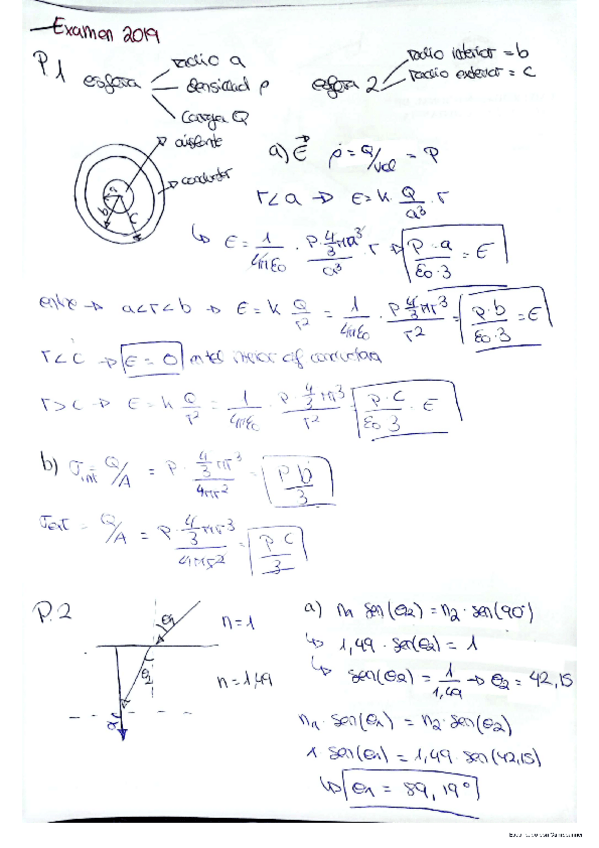 Examen 2019
P.1 esfera radio a
densidad ρ
carga Q
esfera 2 radio interior = b
radio exterior = c
aislante
conductor
a b c
a) E⃗ ρ = Q/vol = P
r < a → E = k · Q/a³ · r
↳ E = 1/4πε₀ · P · 4/3 π a³/a³ · r → P · a/ε₀ · 3 = E
entre → a < r < b → E = k Q/r² = 1/4πε₀ · P 4/3 π r³/r² = P · b/ε₀ · 3 = E
r < c → E = 0
r > c → E = k Q/r² = 1/4πε₀ · P · 4/3 π r³/r² = P · C/ε₀ 3 · E
b) σint = Q/A = P · 4/3 π r³/4πr² = P b/3
σext = Q/A = P · 4/3 π r³/4πr² = P C/3
P.2
θ₁ n = 1
θ₂ n = 1,49
a) n₁ sen(θ₂) = n₂ · sen(90°)
↳ 1,49 · sen(θ₂) = 1
↳ sen(θ₂) = 1/1,49 → θ₂ = 42,15
n₁ · sen(θ₁) = n₂ · sen(θ₂)
1 sen(θ₁) = 1,49 · sen(42,15)
↳ θ₁ = 89,19°